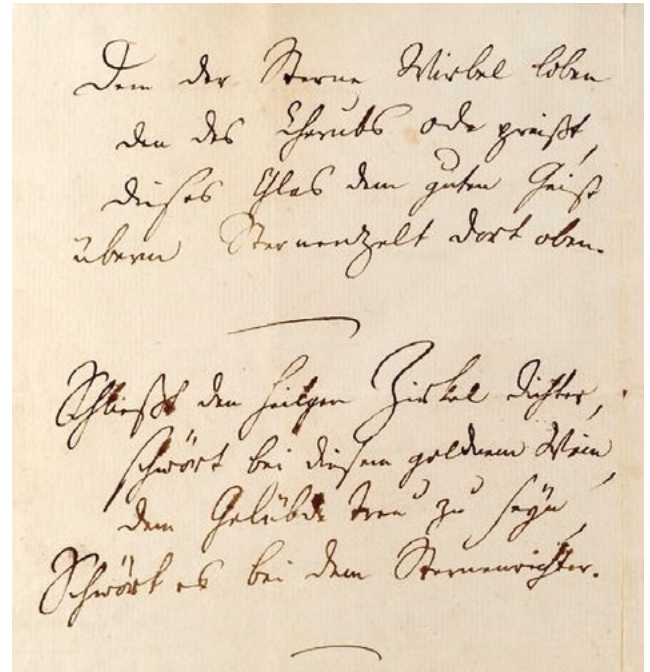 Dem der Sterne Wirbel loben
den des Cherubs ode preißt,
dieses Glas dem guten Geist
überm Sternenzelt dort oben.
Schließt den heilgen Zirkel dichter,
schwört bei diesem goldnem Wein,
dem Gelübde treu zu seyn,
Schwört es bei dem Sternenrichter.